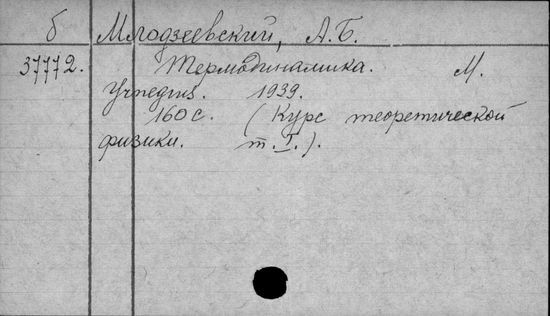 б Млодзеевский, А.Б.
37772. Термодинамика. М.
Учпедгиз. 1939.
160 с. (Курс теоретической
физики. т. I.).